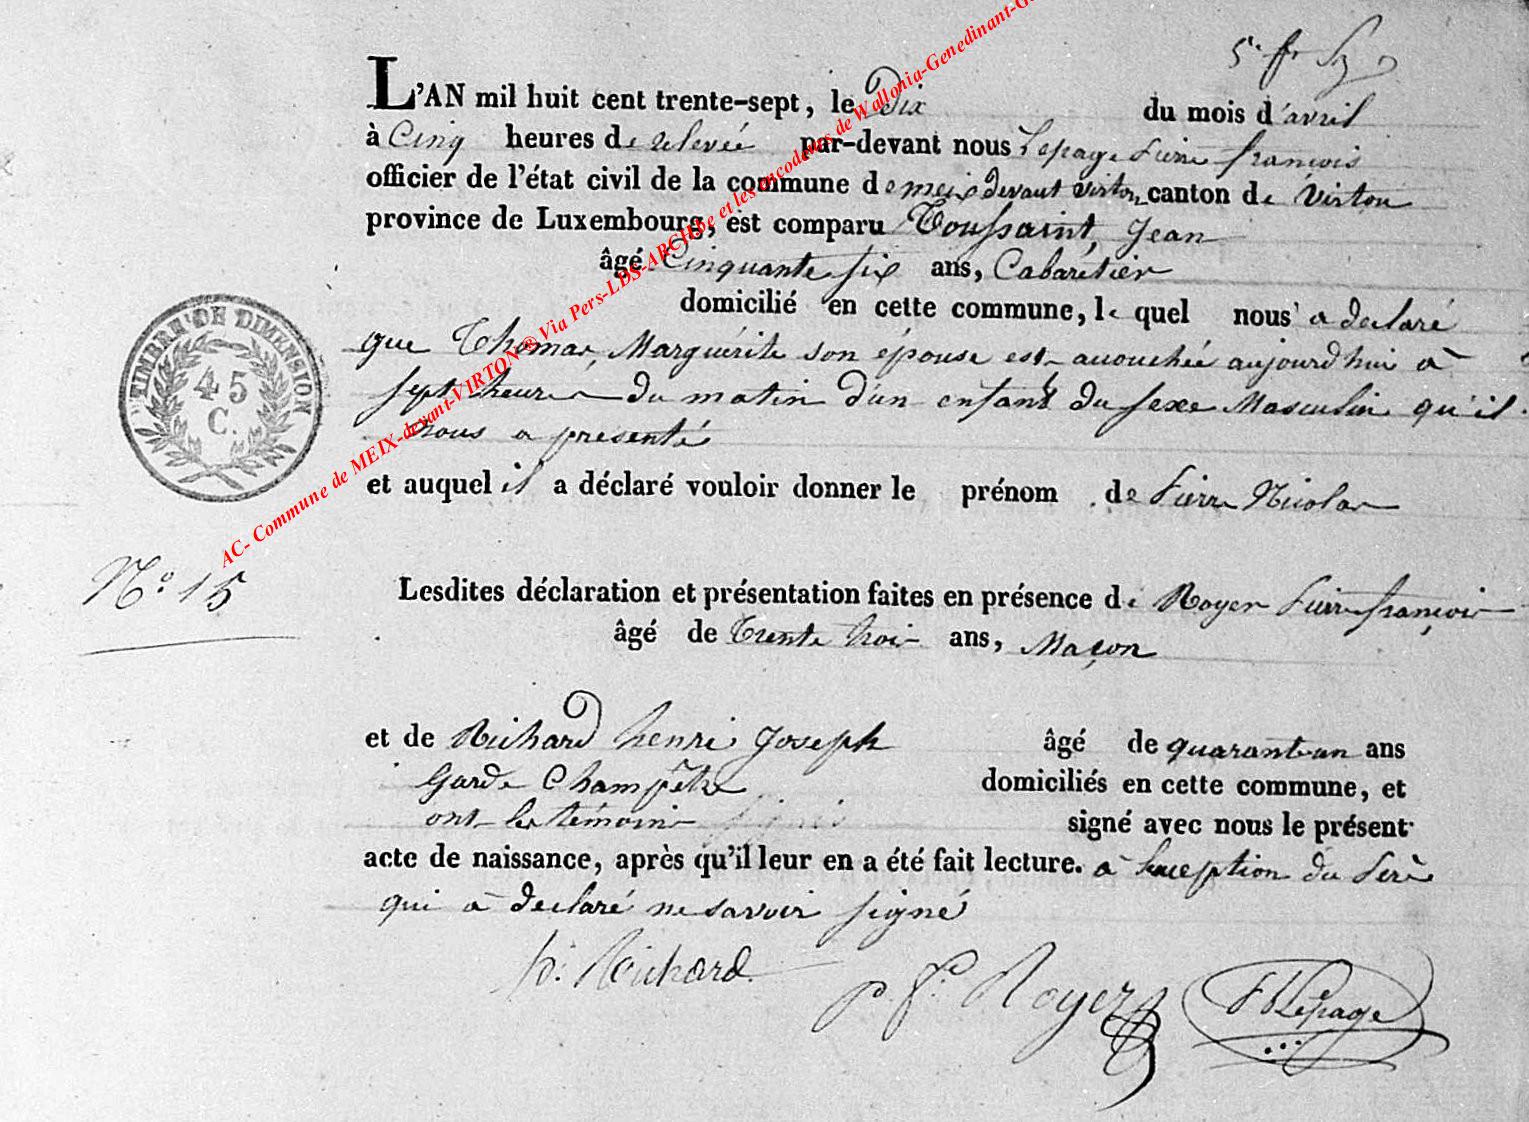 L'AN mil huit cent trente-sept, le Dix du mois d'avril
à Cinq heures de relevée par-devant nous Lepage Pierre françois
officier de l'état civil de la commune de meix devant virton canton de Virton
province de Luxembourg, est comparu Toussaint, Jean
âgé Cinquante six ans, Cabarétier
domicilié en cette commune, le quel nous a declaré
que Thomas, Marguérite son épouse est accouchée aujourd'hui à
sept heures du matin d'un enfant du sexe Masculin qu'il
nous a présenté
et auquel il a déclaré vouloir donner le prénom de Pierre Nicolas
TIMBRE DE DIMENSION
45
C.
N.o 15
Lesdites déclaration et présentation faites en présence de Royer Pierre françois
âgé de Trente trois ans, Maçon
et de Richard henri Joseph âgé de quarant-un ans
Garde Champêtre domiciliés en cette commune, et
ont les témoins signé avec nous le présent
acte de naissance, après qu'il leur en a été fait lecture. à l'exception du Père
qui à declaré ne savoir signé
h. Richard
p. f. Royer
P f Lepage
AC- Commune de MEIX-devant-VIRTON ® Via Pers-LDS-ARCH.be et les encodeurs de Wallonia-Genedinant-G